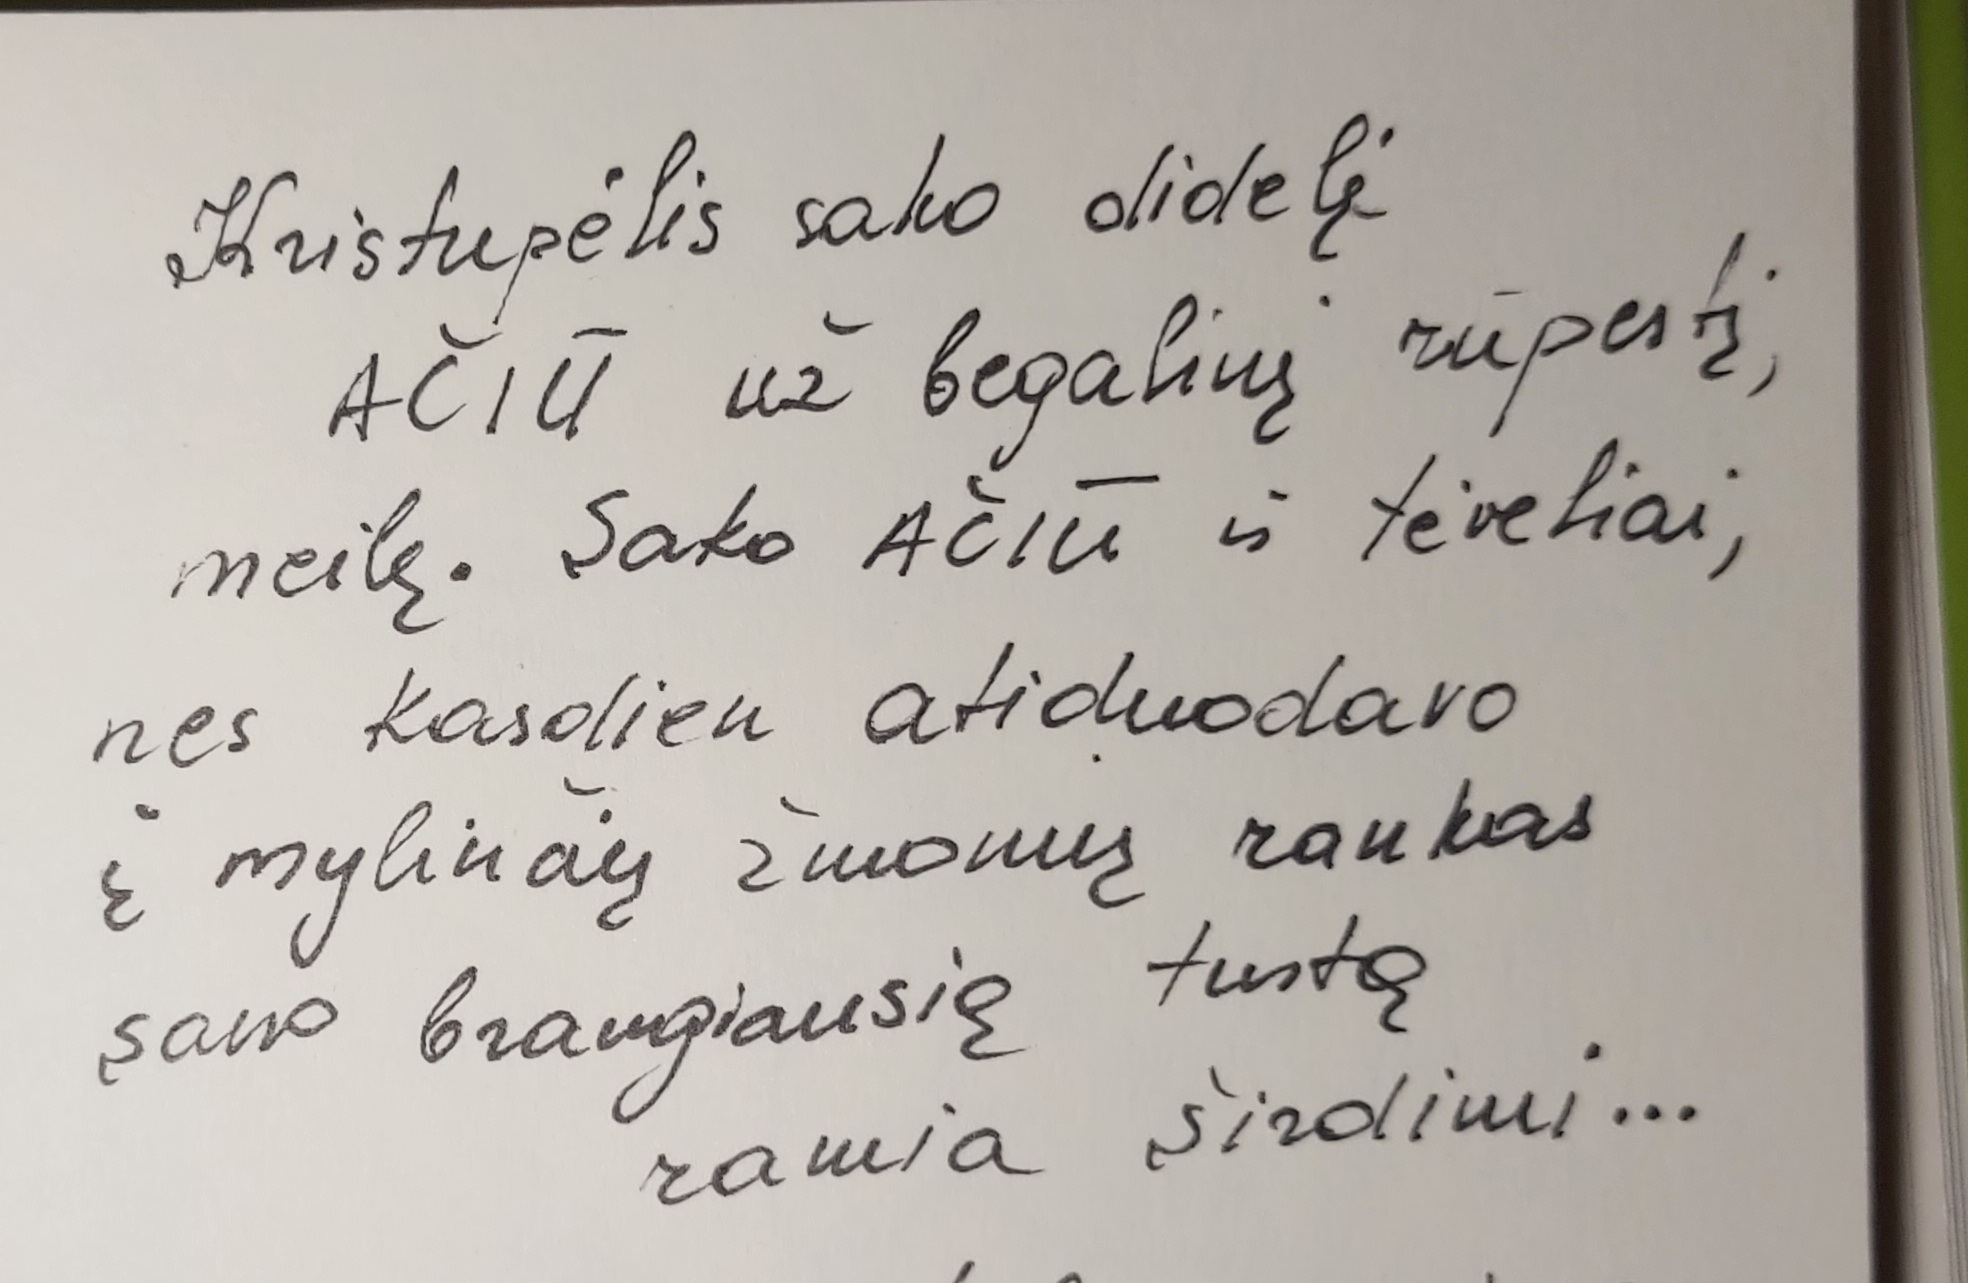 Kristupėlis sako didelį
AČIŪ už begalinį rūpestį,
meilę. Sako AČIŪ ir tėveliai,
nes kasdien atiduodavo
į mylinčių žmonių rankas
savo brangiausią turtą
ramia širdimi...